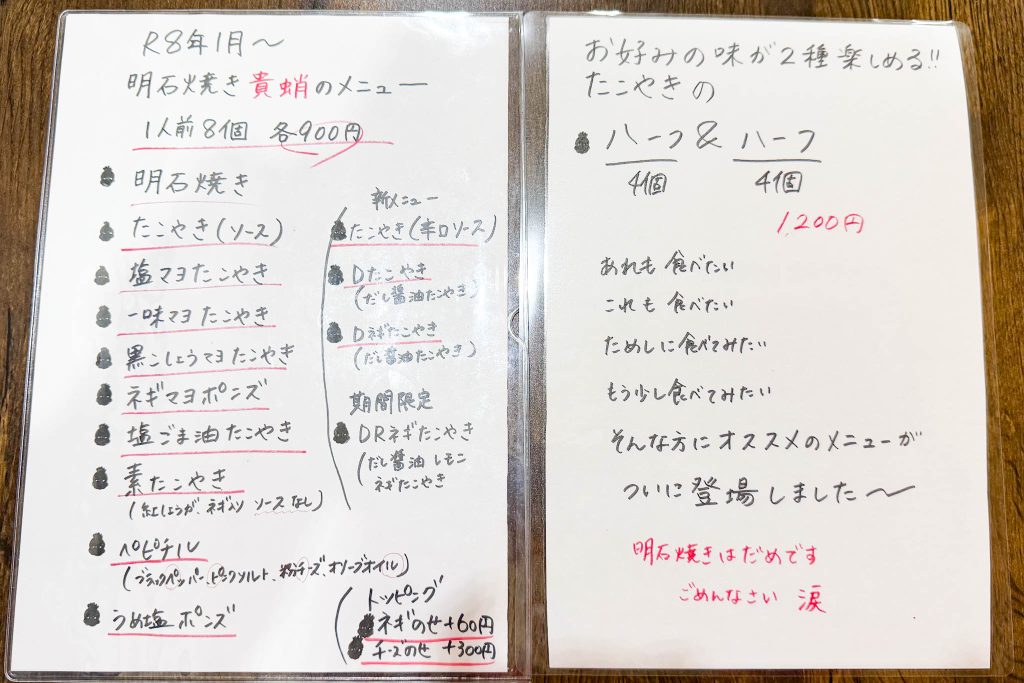 R8年1月〜
明石焼き 貴蛸のメニュー
1人前8個 各900円
明石焼き
たこやき(ソース)
塩マヨたこやき
一味マヨたこやき
黒こしょうマヨたこやき
ネギマヨポンズ
塩ごま油たこやき
素たこやき
(紅しょうが、ネギ入り ソースなし)
ペピチル
(ブラックペッパー、ピンクソルト、粉チーズ、オリーブオイル)
うめ塩ポンズ
新メニュー
たこやき(辛口ソース)
Dたこやき
(だし醤油たこやき)
Dネギたこやき
(だし醤油たこやき)
期間限定
DRネギたこやき
(だし醤油レモン
ネギたこやき
トッピング
ネギのせ+60円
チーズのせ +300円
お好みの味が2種楽しめる!!
たこやきの
ハーフ & ハーフ
4個 4個
1,200円
あれも食べたい
これも食べたい
ためしに食べてみたい
もう少し食べてみたい
そんな方にオススメのメニューが
ついに登場しました〜
明石焼きはだめです
ごめんなさい 涙